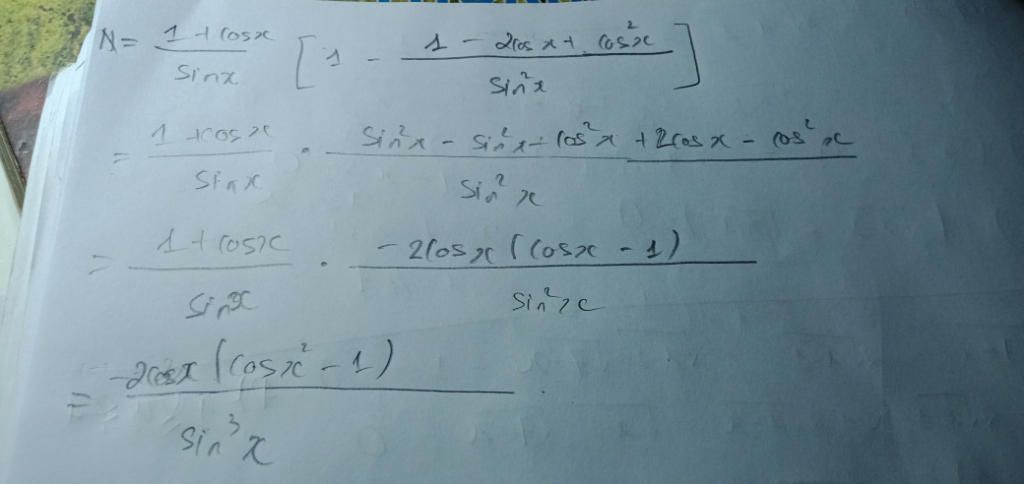 N = \frac{1 + cosx}{sinx} [ 1 - \frac{1 - 2cosx + cos^2x}{sin^2x} ]
= \frac{1 + cosx}{sinx} \cdot \frac{sin^2x - sin^2x - cos^2x + 2cosx - cos^2x}{sin^2x}
= \frac{1 + cosx}{sinx} \cdot \frac{-2cosx(cosx - 1)}{sin^2x}
= \frac{-2cosx(cosx^2 - 1)}{sin^3x}